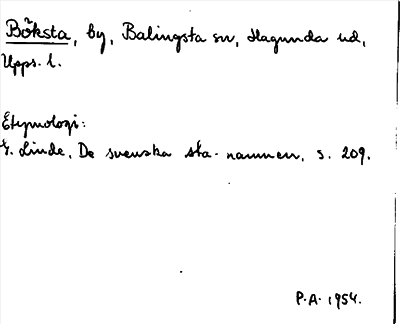 Böksta, by, Balingsta sn, Hagunda hd,
Upps. l.
Etymologi:
G. Linde, De svenska sta-namnen, s. 209.
P.A. 1954.